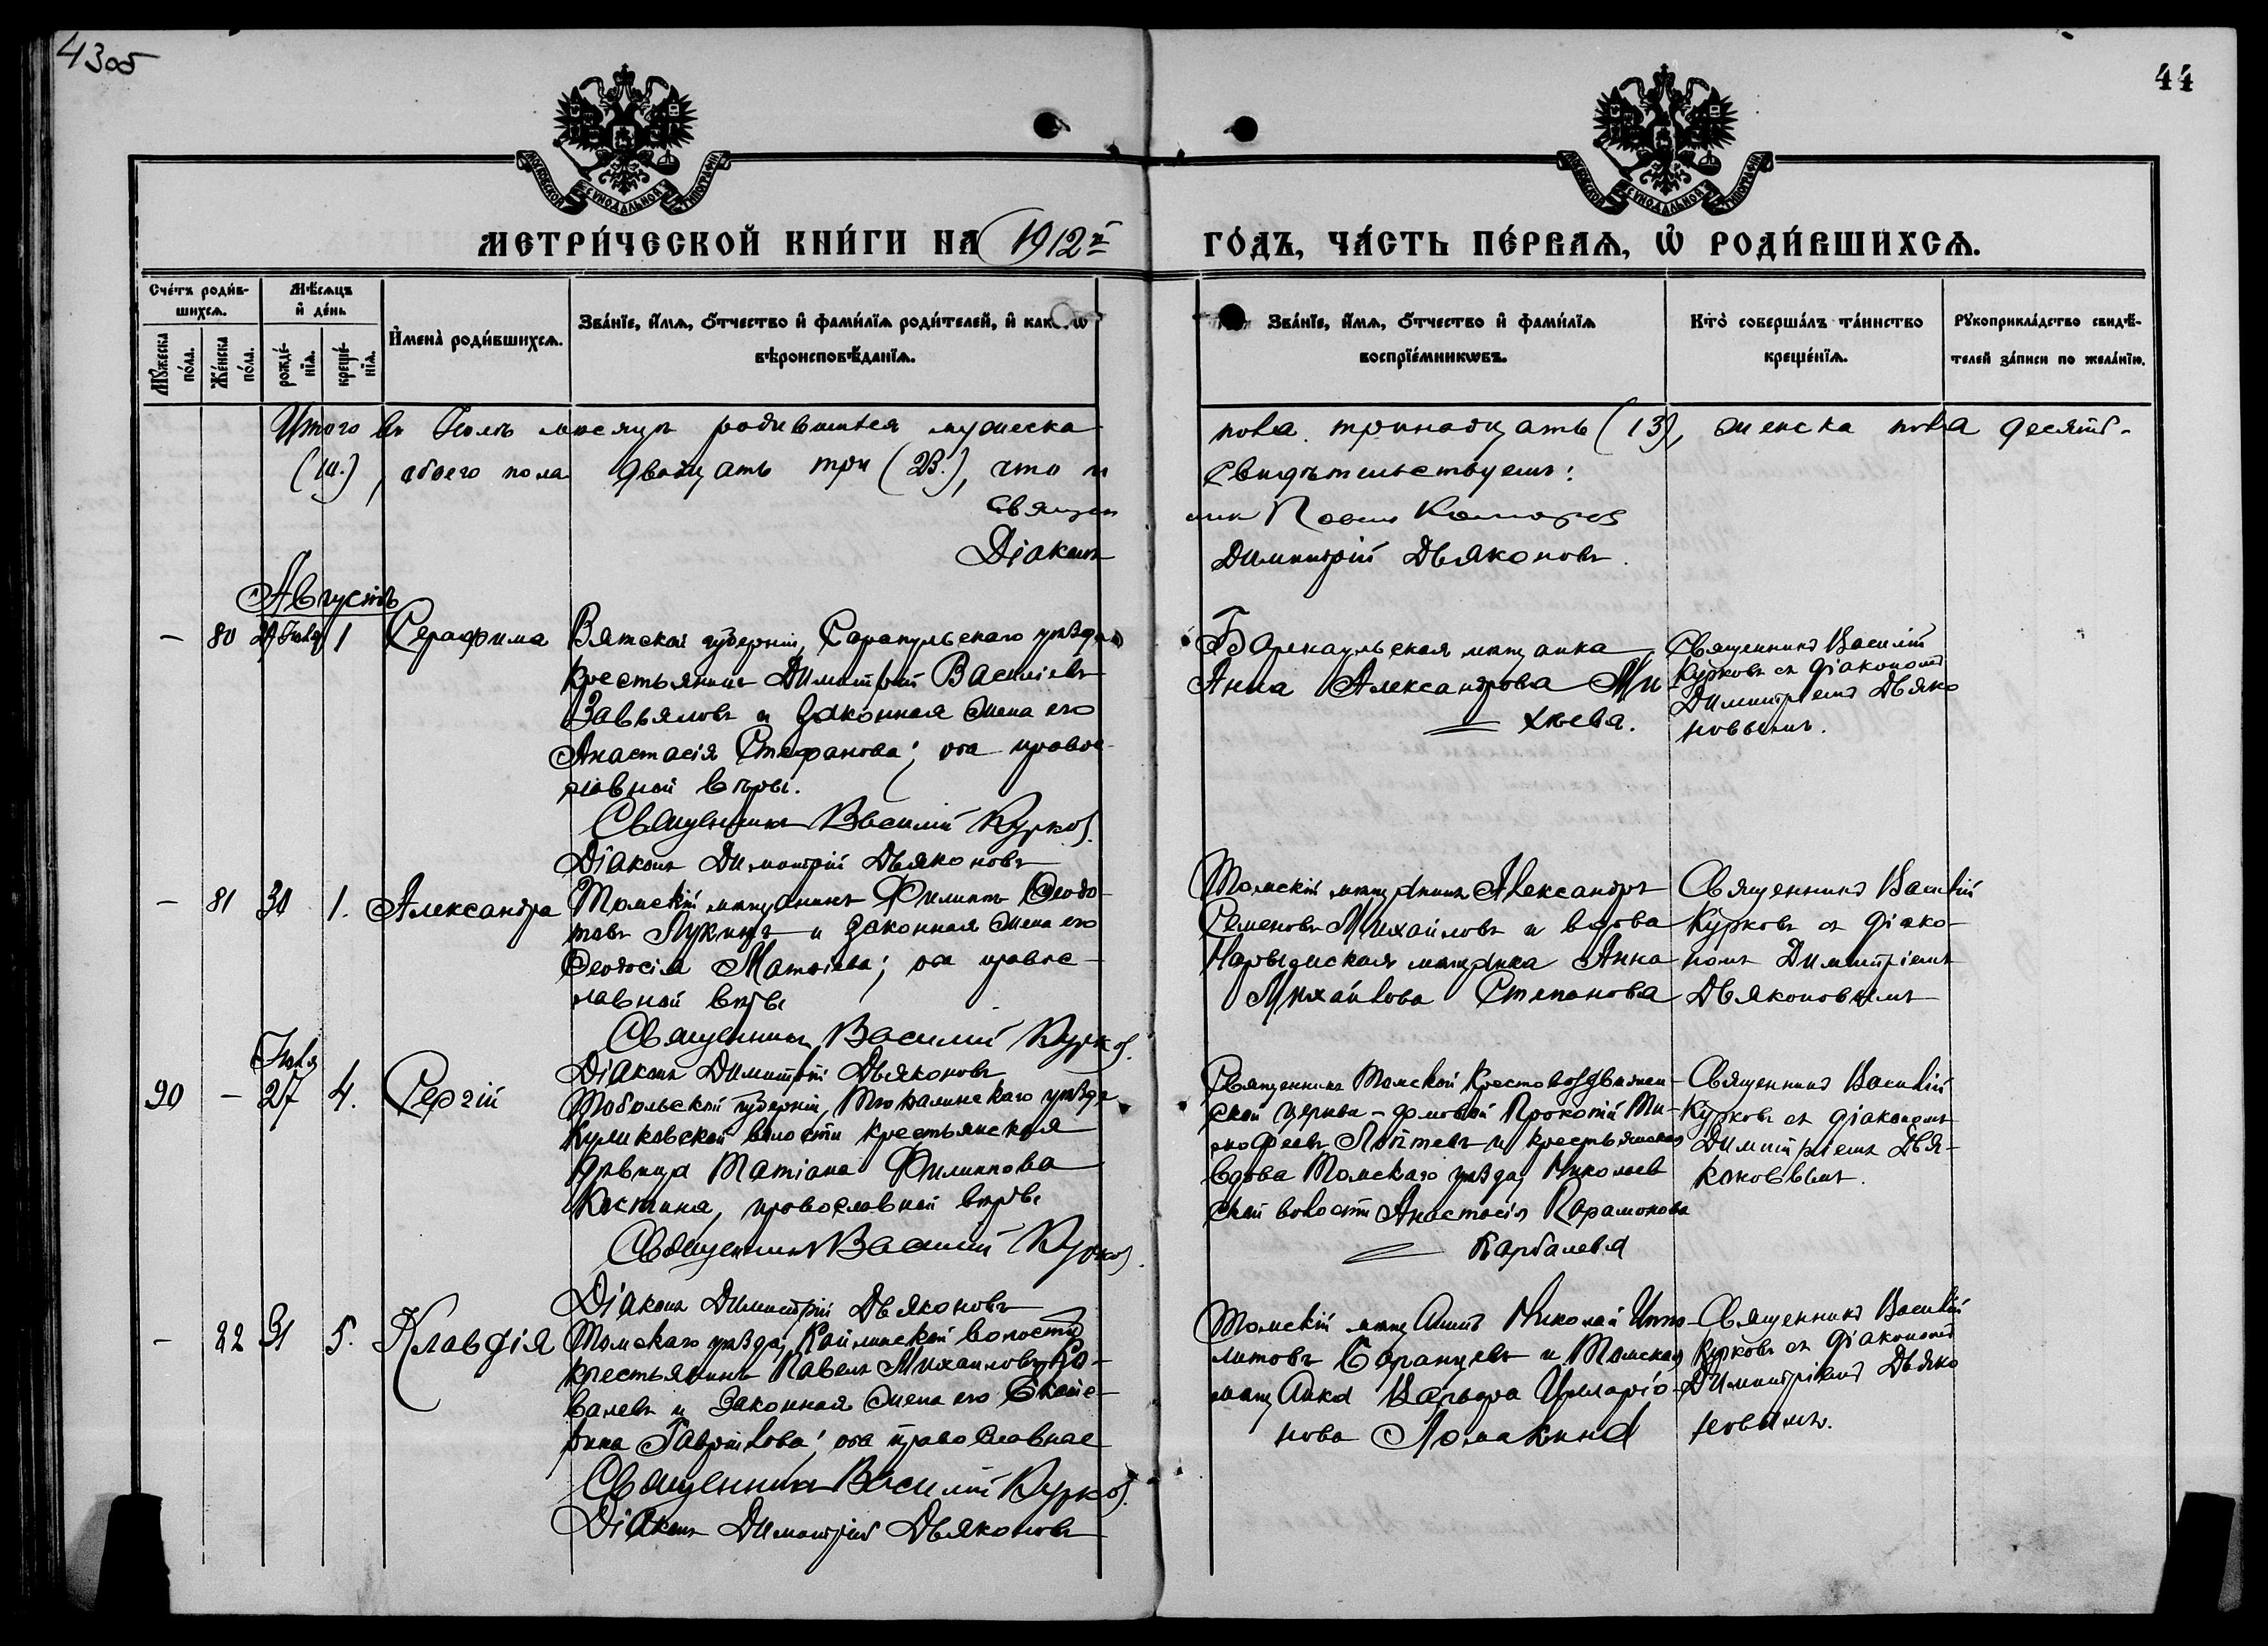 4305
44
МОСКОВСКОЙ СѴНОДАЛЬНОЙ ТИПОГРАФІИ
МОСКОВСКОЙ СѴНОДАЛЬНОЙ ТИПОГРАФІИ
МЕТРИ́ЧЕСКОЙ КНИ́ГИ НА 1912й ГО́ДЪ, ЧА́СТЬ ПЕ́РВАѦ, Ѡ҆ РОДИ́ВШИХСѦ.
Сче́тъ роди́в-
шихсѧ.
Мѣ́сѧцъ
и҆ де́нь
Мꙋ́жеска по́ла.
Же́нска по́ла.
рожде́нїѧ.
креще́нїѧ.
И҆мена̀ роди́вшихсѧ.
Зва́нїе, и҆́мѧ, ѻ҆́тчество и҆ фами́лїѧ роди́телей, и҆
вѣроисповѣ́данїѧ.
Зва́нїе, и҆́мѧ, ѻ҆́тчество и҆ фами́лїѧ
воспрїе́мникѡвъ.
Кто̀ соверша́лъ та́инство
креще́нїѧ.
Рꙋкоприкла́дство свидѣ́-
телей за́писи по жела́нїю.
Итого въ Іюлѣ мѣсяцѣ родившихся мужеска пола тринадцать (13), женска пола десять
(10.), обоего пола двадцать три (23.), что и свидѣтельствуемъ:
Священникъ Павелъ Комаровъ
Діаконъ Димитрій Дьяконовъ.
Августъ
— 80 29 Іюля 1 Серафима
Вятской губерніи, Сарапульскаго уѣзда
крестьянинъ Димитрій Василіевъ
Завьяловъ и законная жена его
Анастасія Стефанова; оба правос-
лавной вѣры.
Священникъ Василій Курковъ.
Діаконъ Димитрій Дьяконовъ
Барнаульская мѣщанка
Анна Александрова Ми-
хѣева.
Священникъ Василій
Курковъ съ діакономъ
Димитріемъ Дьяко
новымъ.
— 81 30 1. Александра
Томскій мѣщанинъ Филиппъ Ѳеодо-
товъ Лукинъ и законная жена его
Ѳеодосія Матѳіева; оба правос-
лавной вѣры
Священникъ Василій Курковъ.
Діаконъ Димитрій Дьяконовъ
Томскій мѣщанинъ Александръ
Семеновъ Михайловъ и вдова
Нарымская мѣщанка Анна
Михайлова Степанова
Священникъ Василій
Курковъ съ діако-
номъ Димитріемъ
Дьяконовымъ
Іюля
90 — 27 4. Сергій
Тобольской губерніи, Тюкалинскаго уѣзда
Куликовской волости крестьянская
дѣвица Татіана Филиппова
Костина, православной вѣры
Священникъ Василій Курковъ.
Діаконъ Димитрій Дьяконовъ
Священникъ Томской Крестовоздвижен-
ской церкви - домовой Прокопій Ти-
мофеевъ Лаптевъ и крестьянская
вдова Томскаго уѣзда, Николаев
ской волости Анастасія Парамонова
Карбалева
Священникъ Василій
Курковъ съ діакономъ
Димитріемъ Дья-
коновымъ.
— 82 31 5. Клавдія
Томскаго уѣзда, Кайлинской волости
крестьянинъ Павелъ Михаиловъ Ко-
валевъ и законная жена его Екате-
рина Гаврилова; оба православные
Священникъ Василій Курковъ.
Діаконъ Димитрій Дьяконовъ
Томскій мѣщанинъ Николай Иппо-
литовъ Баранцевъ и Томская
мѣщанка Варвара Илларіо-
нова Ломакина
Священникъ Василій
Курковъ съ діакономъ
Димитріемъ Дьяко
новымъ.